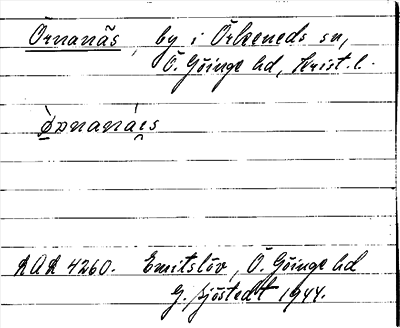 Örnanäs, by i Örkeneds sn,
Ö. Göinge hd, Krist. l.
LAL 4260. Emitslöv, Ö. Göinge hd
G. Sjöstedt 1944.